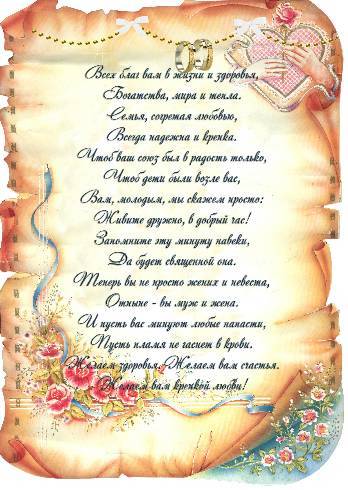 Всех благ вам в жизни и здоровья,
Богатства, мира и тепла.
Семья, согретая любовью,
Всегда надежна и крепка.
Чтоб ваш союз был в радость только,
Чтоб дети были возле вас,
Вам, молодым, мы скажем просто:
Живите дружно, в добрый час!
Запомните эту минуту навеки,
Да будет священной она.
Теперь вы не просто жених и невеста,
Отныне - вы муж и жена.
И пусть вас минуют любые напасти,
Пусть пламя не гаснет в крови.
Желаем здоровья. Желаем вам счастья.
Желаем вам крепкой любви!